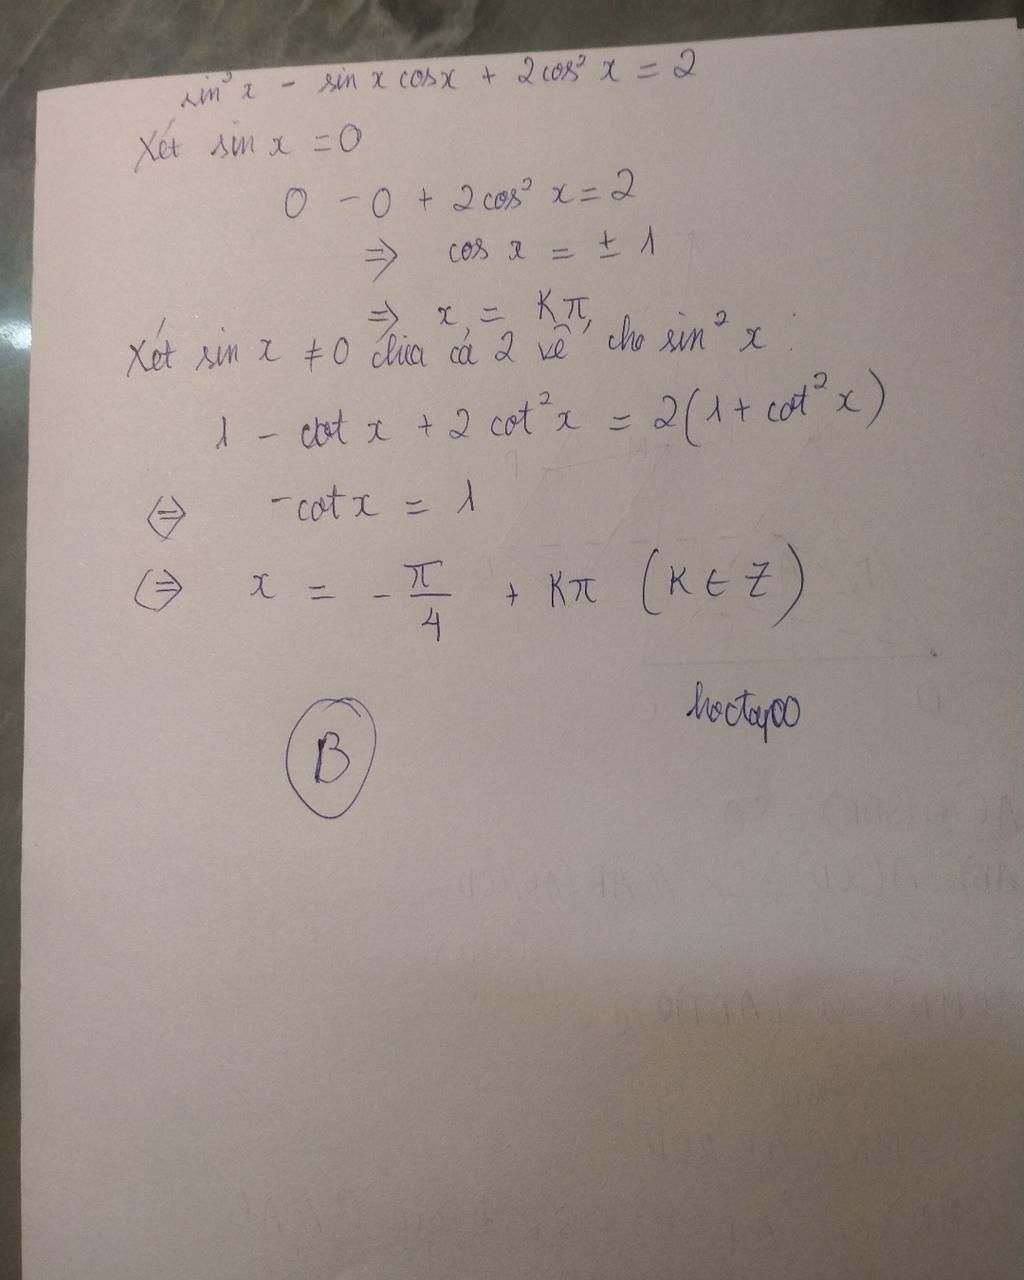 sin² x - sin x cos x + 2 cos² x = 2
Xét sin x = 0
0 - 0 + 2 cos² x = 2
⇒ cos x = ± 1
⇒ x = Kπ,
Xét sin x ≠ 0 chia cả 2 vế cho sin² x :
1 - cot x + 2 cot² x = 2(1 + cot² x)
⇔ -cot x = 1
⇔ x = - π/4 + Kπ (K ∈ Z)
hoctap00
B